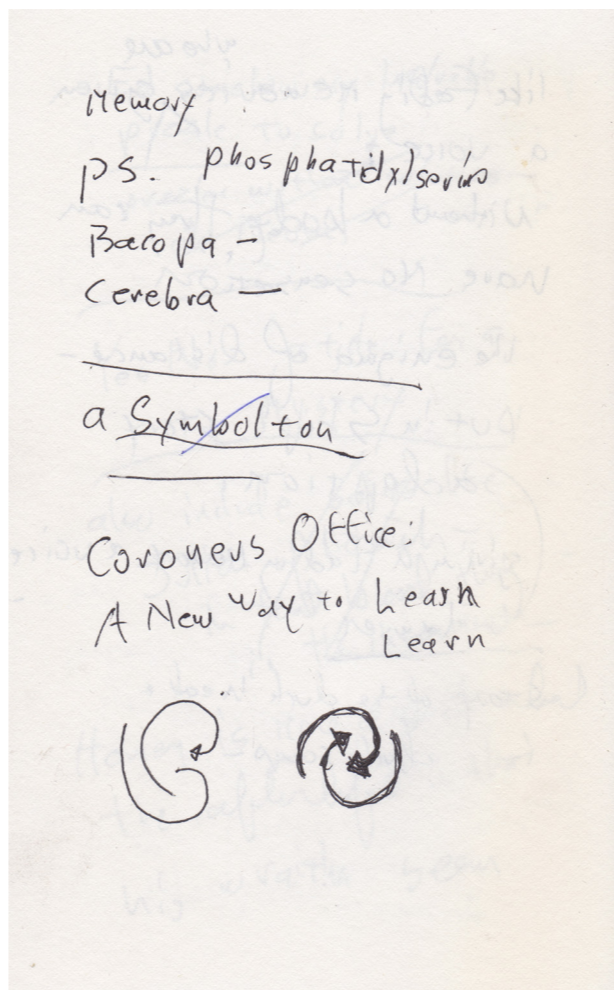 Memory
ps. phosphatdxlserins
Bacopa -
Cerebra —
a Symbolton
Coroners Office:
A New way to Learn
Learn